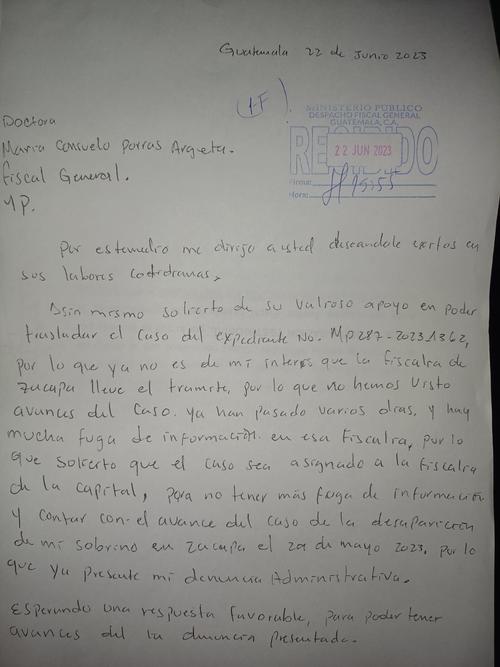 Guatemala 22 de Junio 2023
(1F).
MINISTERIO PÚBLICO
DESPACHO FISCAL GENERAL
GUATEMALA, C.A.
RECIBIDO
22 JUN 2023
Firma:
Hora: 15:55
Doctora
Maria Consuelo Porras Argueta.
Fiscal General.
MP.
Por este medio me dirijo a usted deseandole exitos en
sus labores cotidianas,
Asin mismo solicito de su valioso apoyo en poder
trasladar el caso del expediente No. MP287-20231362,
por lo que ya no es de mi interes que la fiscalia de
Zacapa lleve el tramite, por lo que no hemos visto
avances del caso. ya han pasado varios dias, y hay
mucha fuga de información. en esa Fiscalia, por lo
que solicito que el caso sea asignado a la fiscalia
de la capital, para no tener más fuga de información
y contar con el avance del caso de la desaparicion
de mi sobrino en Zacapa el 29 de mayo 2023, por lo
que ya presente mi denuncia Administrativa.
esperando una respuesta favorable, para poder tener
avances del la denuncia presentada.